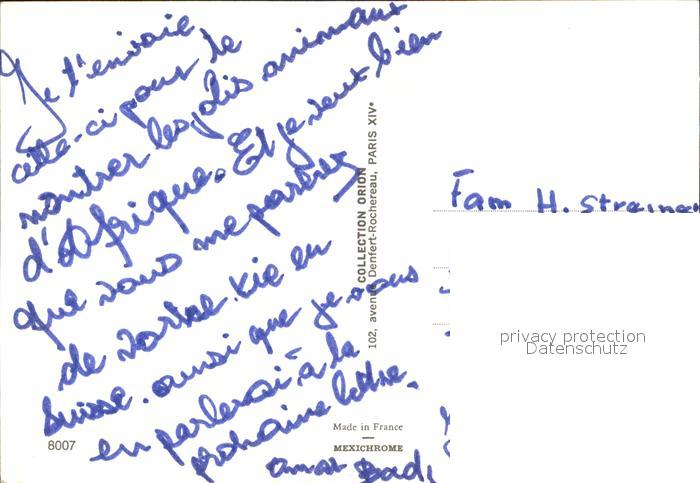 Je t'envoie
cette-ci pour te
montrer les jolis animaux
d'Afrique. Et je veux bien
que vous me parlez
de votre vie en
Suisse. ainsi que je vous
en parlerai à la
prohaine lettre.
Omar Badi
COLLECTION ORION
102, avenue Denfert-Rochereau, PARIS XIVe
8007
Made in France
MEXICHROME
Fam H.
privacy protection
Datenschutz